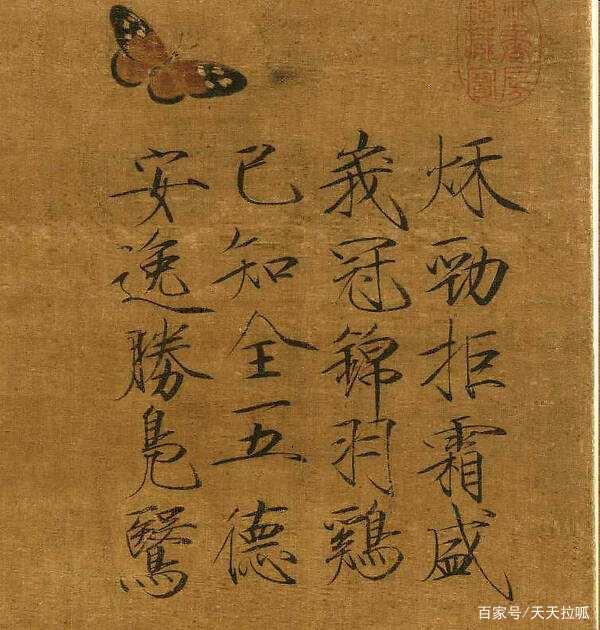 秌勁拒霜盛
峩冠錦羽鷄
已知全五德
安逸勝鳧鷖
百家号/天天拉呱